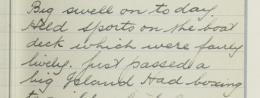 Big swell on to day
Held sports on the boat
deck which were fairly
lively. Just passed a
big Island Had boxing